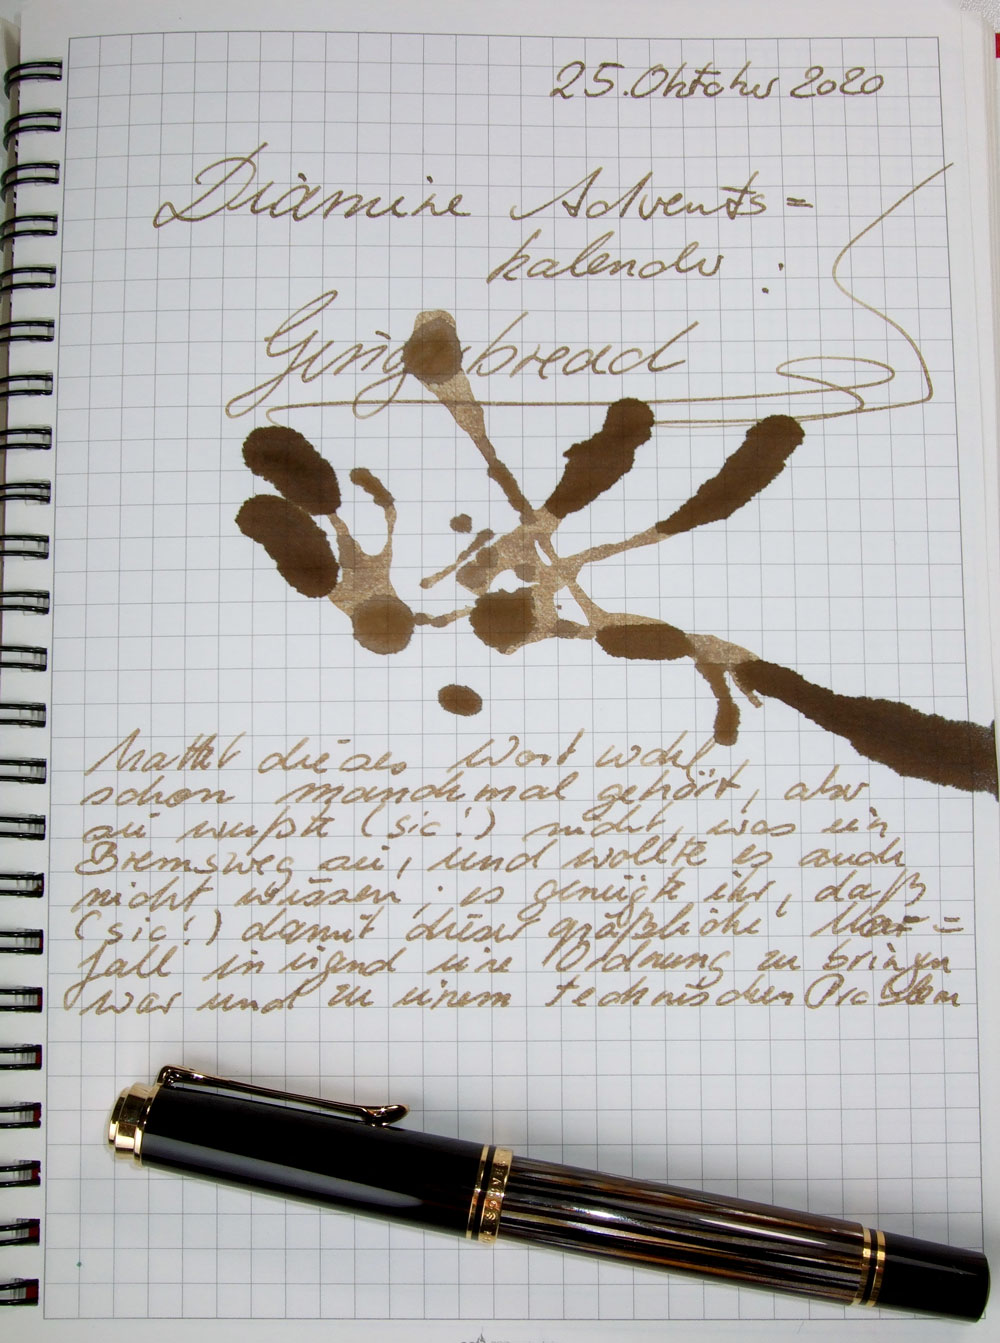 25. Oktober 2020
Diamine Advents=
kalender :
Gingerbread
hatte dieses Wort wohl
schon manchmal gehört, aber
sie wußte (sic!) nicht, was ein
Bremsweg sei, und wollte es auch
nicht wissen; es genügte ihr, daß
(sic!) damit dieser gräßliche Vor=
fall in irgend eine Ordnung zu bringen
war und zu einem technischen Problem